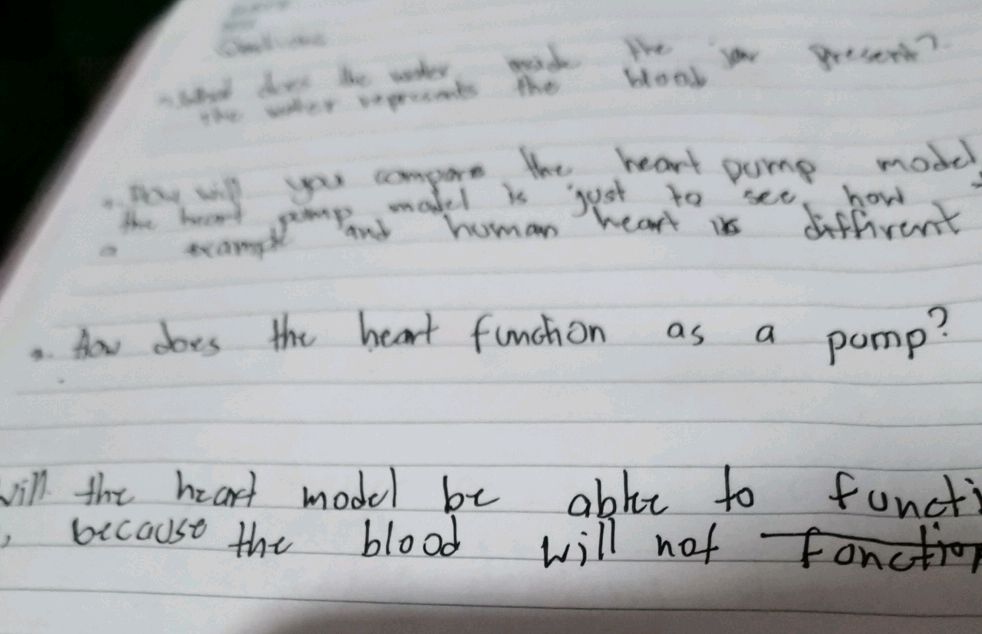 does the water inside the jar present?
the water represents the blood
How will you compare the heart pump model
the heart pump model is just to see how
example and human heart is diffirent
How does the heart function as a pump?
will the heart model be able to functi
because the blood will not fonction